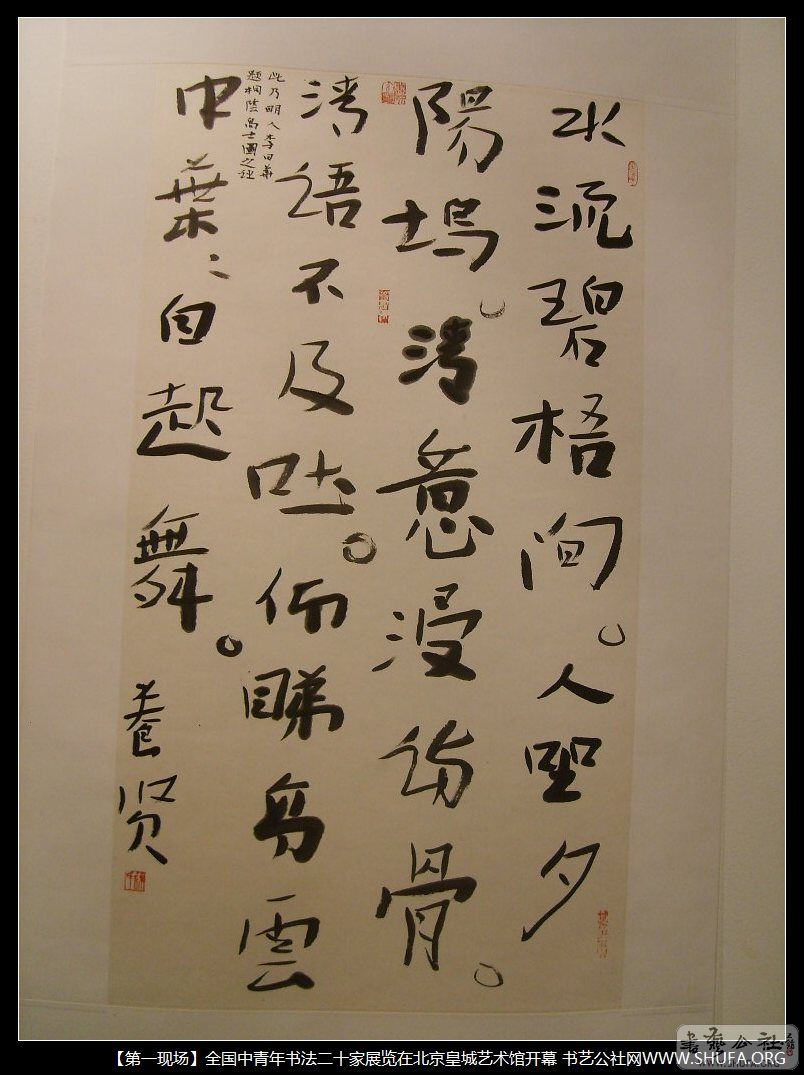 水流碧梧間。人聖夕
陽塢。清意浸骨。
清語不及吐。睇雲
此乃明人李日華
題桐蔭高士圖之
中葉々自起舞。
贤
書藝公社
WWW.SHUFA.ORG
【第一现场】全国中青年书法二十家展览在北京皇城艺术馆开幕 书艺公社网WWW.SHUFA.ORG